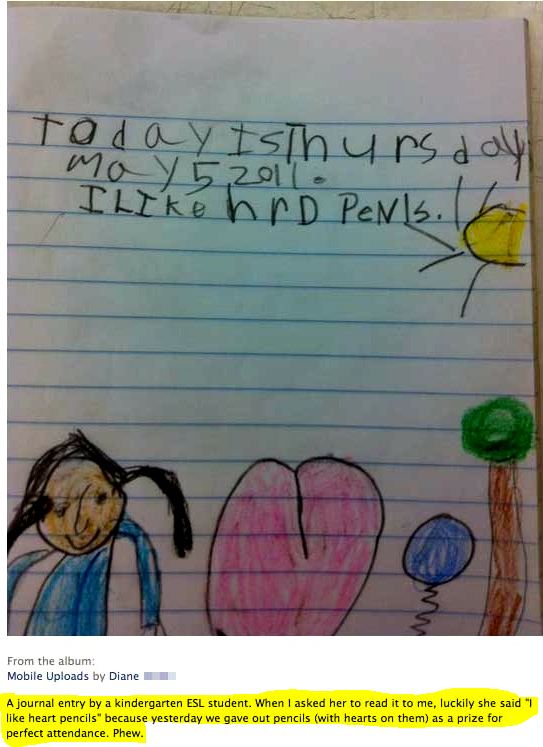 Today Is Thursday
may 5 2011.
I LIKe hrD PeNIs.
From the album:
Mobile Uploads by Diane
A journal entry by a kindergarten ESL student. When I asked her to read it to me, luckily she said "I
like heart pencils" because yesterday we gave out pencils (with hearts on them) as a prize for
perfect attendance. Phew.